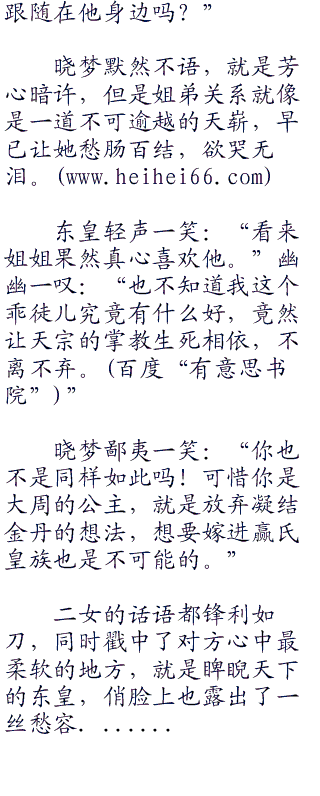 跟随在他身边吗？”
晓梦默然不语，就是芳
心暗许，但是姐弟关系就像
是一道不可逾越的天崭，早
已让她愁肠百结，欲哭无
泪。(www.heihei66.com)
东皇轻声一笑：“看来
姐姐果然真心喜欢他。”幽
幽一叹：“也不知道我这个
乖徒儿究竟有什么好，竟然
让天宗的掌教生死相依，不
离不弃。(百度“有意思书
院”)”
晓梦鄙夷一笑：“你也
不是同样如此吗！可惜你是
大周的公主，就是放弃凝结
金丹的想法，想要嫁进赢氏
皇族也是不可能的。”
二女的话语都锋利如
刀，同时戳中了对方心中最
柔软的地方，就是睥睨天下
的东皇，俏脸上也露出了一
丝愁容．......